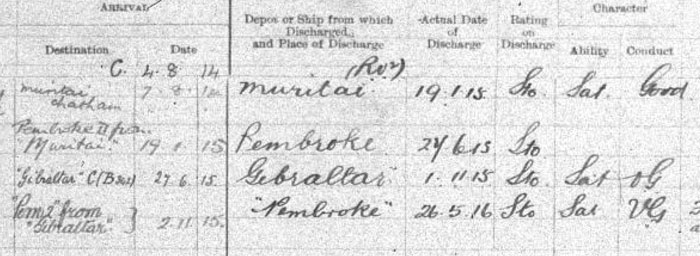 Arrival
Depot or Ship from which
Discharged,
and Place of Discharge
Actual Date
of
Discharge
Rating
on
Discharge
Character
Destination
Date
Ability
Conduct
C. 4. 8. 14 (RV2)
Muritai 7. 8. Muritai 19.1.15 Sto Sat Good
Chatham
Pembroke II from
"Muritai" 19 1 15 Pembroke 24 6 15 Sto
"Gibraltar" 27. 6. 15. Gibraltar 1. 11 15 Sto. Sat VG
"Pem 2" from
"Gibraltar" } 2.11.15. "Pembroke" 26. 5. 16 Sto Sat VG